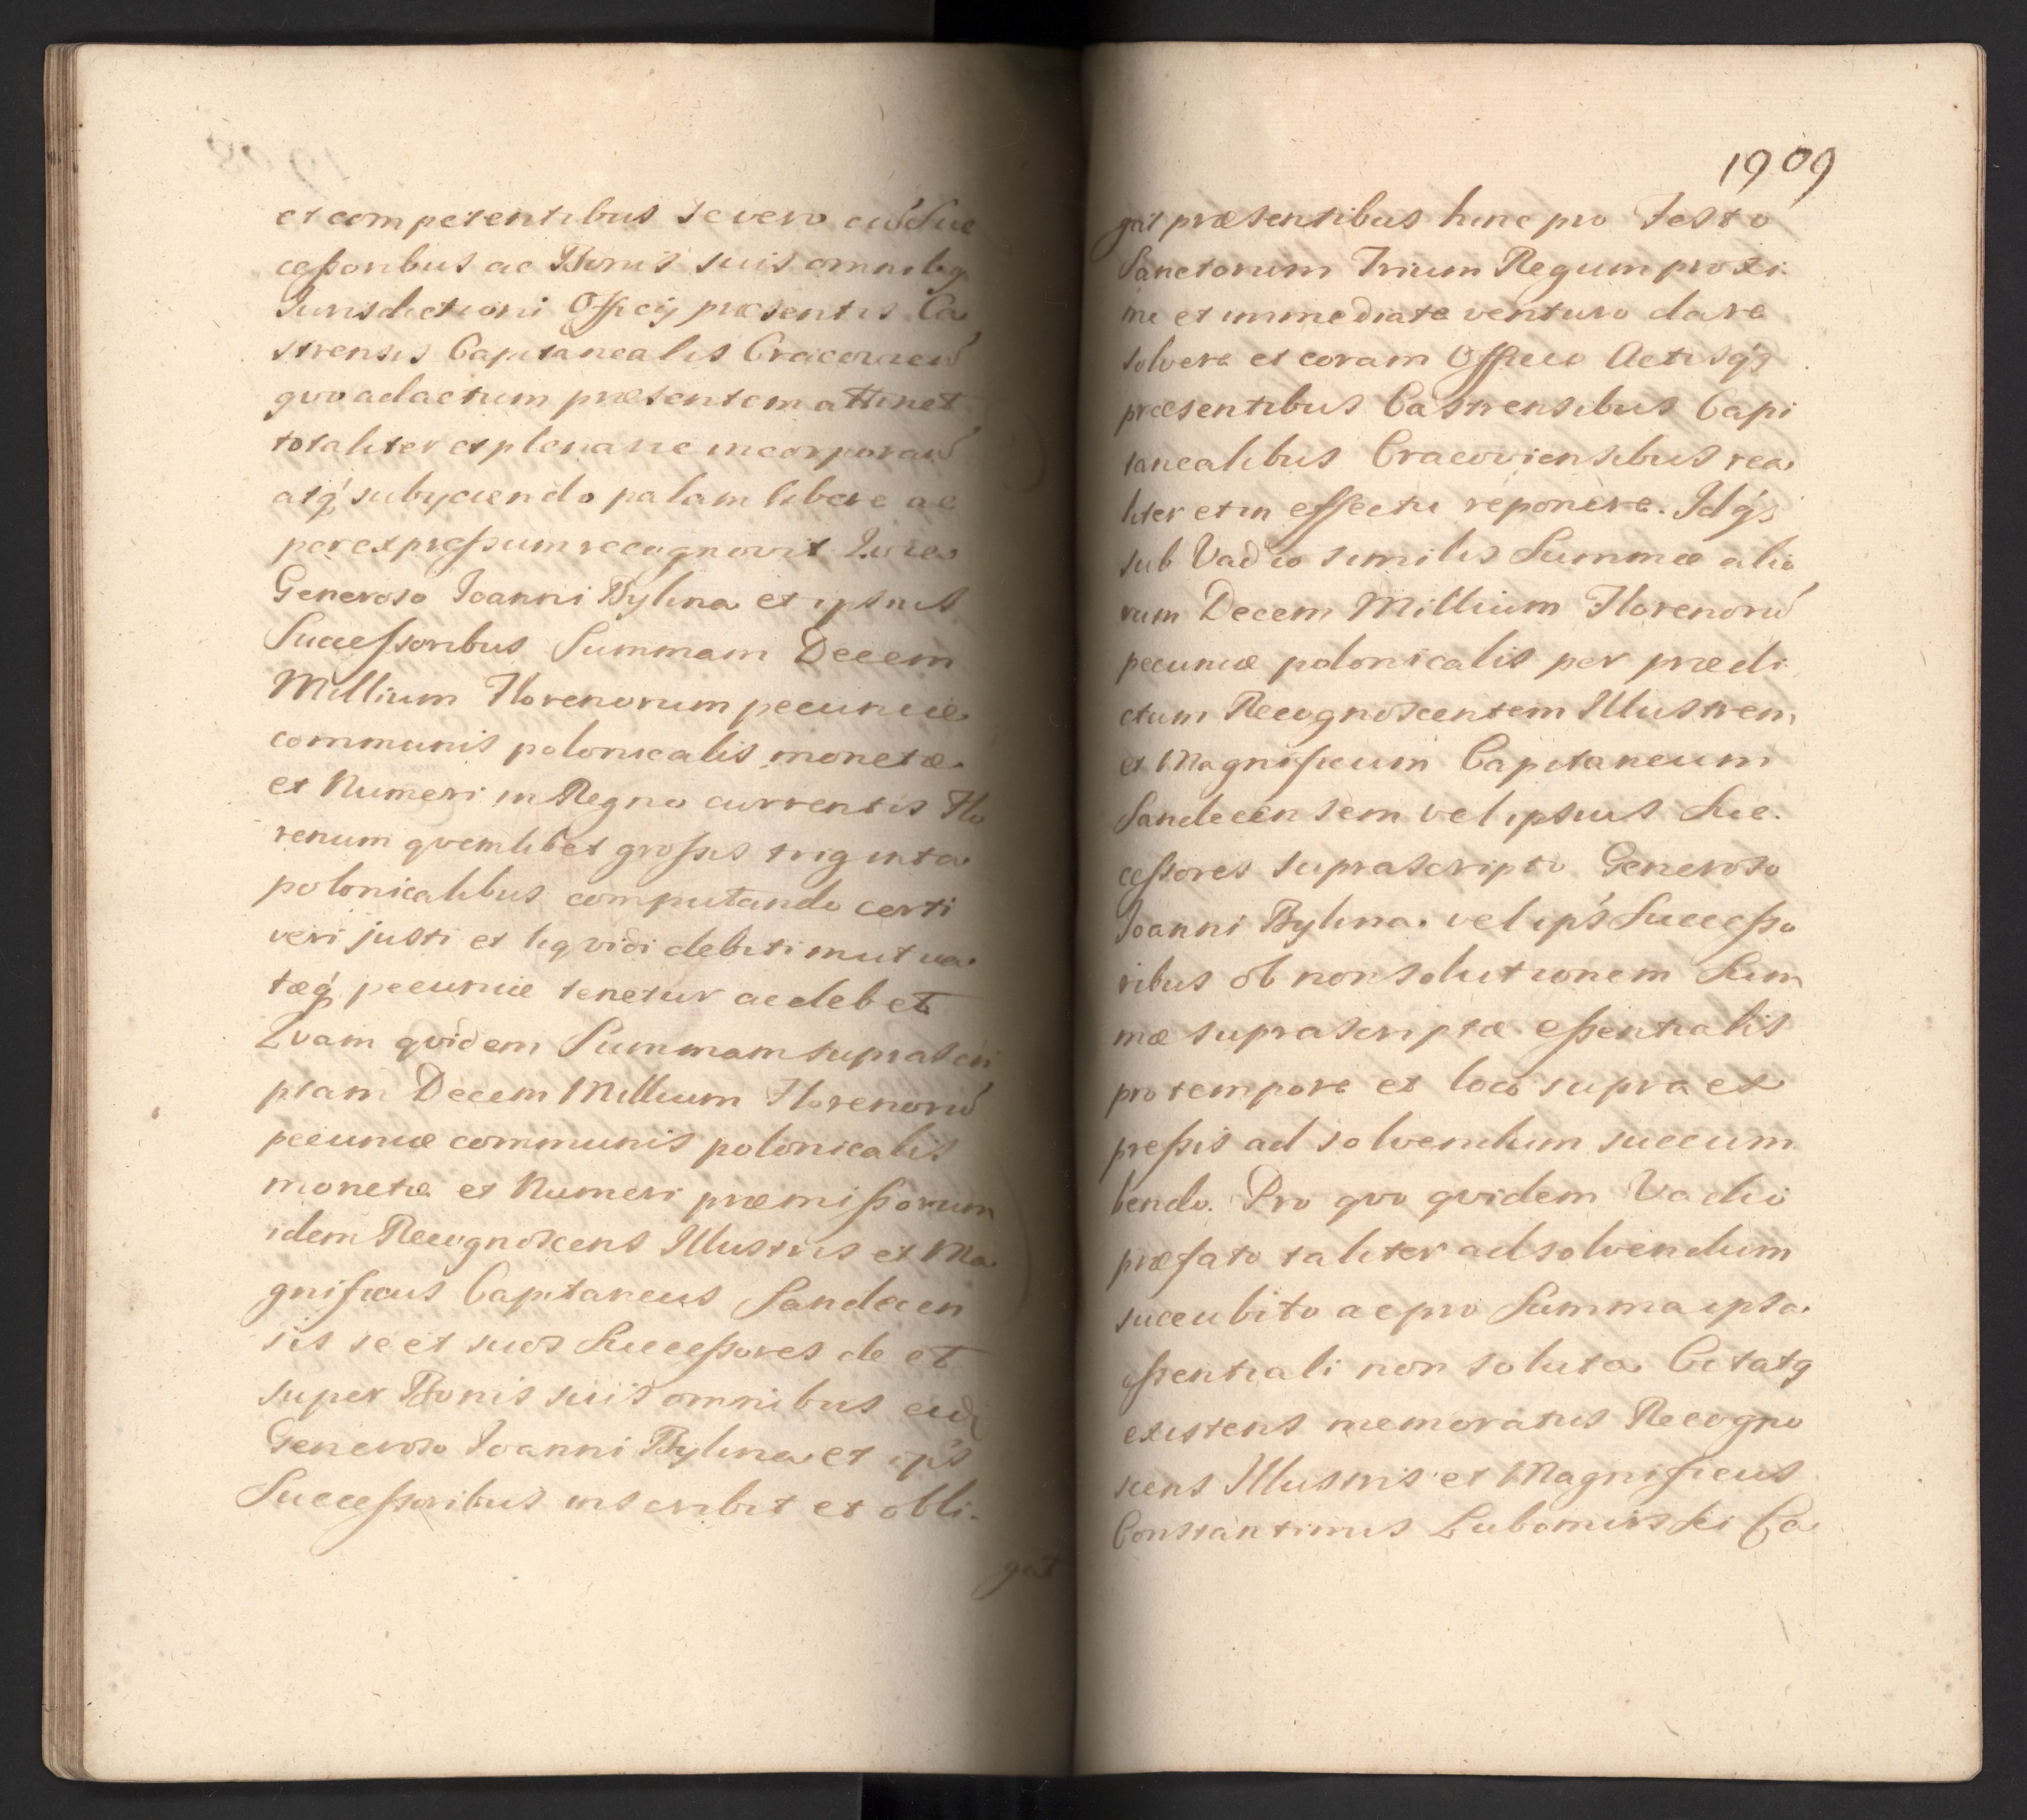 et competentibus se vero cū Suc
ceßoribus ac Bonis suis omnibq
Jurisdictioni Officij præsentis Ca
strensis Capitanealis Cracovien̄
qvo ad actum præsentem attinet
totaliter et plenarie incorporan̄
atq́ subijciendo palam libere ac
per expreßum recognovit. Qvia
Generoso Joanni Bylina et ipsius
Succeßoribus Summam Decem
Millium Florenorum pecuniæ
communis polonicalis monetæ
et Numeri in Regno currentis Flo
renum qvemlibet großis triginta
polonicalibus computando certi
veri justi et liqvidi debiti mutua
tæq́ pecuniæ tenetur ac debet
Qvam qvidem Summam suprascri
ptam Decem Millium Florenorū
pecuniæ communis polonicalis
monetæ et Numeri præmißorum
idem Recognoscens Illustris et Ma
gnificus Capitaneus Sandecen
sis se et suos Succeßores de et
super Bonis suis omnibus eid
Generoso Joanni Bylina et ip's
Succeßoribus inscribit et obli-
gat
1909
gat præsentibus hinc pro Festo
Sanctorum Trium Regum proxi
me et immediate venturo dare
solvere et coram Officio Actisq́3
præsentibus Castrensibus Capi
tanealibus Cracoviensibus rea
liter et in effectu reponere. Idq́3
sub Vadio similis Summæ alio
rum Decem Millium Florenorū
pecuniæ polonicalis per prædi
ctum Recognoscentem Illustrem
et Magnificum Capitaneum
Sandecensem vel ipsius Suc
ceßores suprascripto Generoso
Joanni Bylina vel ip's Succeßo
ribus ob non solutionem Sum
mæ suprascriptæ eßentialis
pro tempore et loco supra ex
preßis ad solvendum succum
bendo. Pro qvo qvidem Vadio
præfato taliter ad solvendum
succubito ac pro Summa ipsa
eßentiali non soluta Citatq
existens memoratus Recogno
scens Illustris et Magnificus
Constantinus Lubomirski Ca